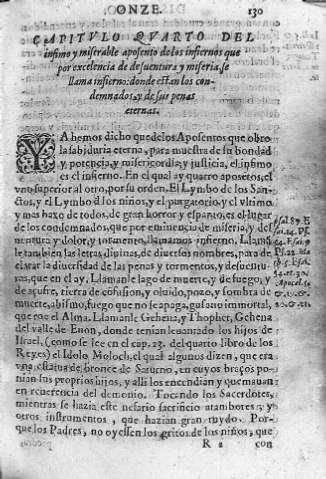 ONZE. 130
CAPITVLO QVARTO DEL
infimo y miserable aposento de los infiernos que
por excelencia de desuentura y miseria, se
llama infierno: donde estan los con-
demnados, y de sus penas
eternas.
YA hemos dicho que de los Aposentos que obro
la sabiduria eterna, para muestra de su bondad
y potencia, y misericordia y justicia, el infimo
es el infierno. En el qual ay quatro aposetos, el
vno superior al otro, por su orden. El Lymbo de los San-
ctos, y el Lymbo d los niños, y el purgatorio, y el vltimo
y mas baxo de todos, de gran horror y espanto, es el lugar
de los condemnados, que por eminencia de miseria, y des
uentura y dolor, y tormento, llamamos infierno. Llaman
le tambien las letras diuinas, de diuersos nombres, para de
clarar la diuersidad de las penas y tormentos, y desuentu-
ras, que en el ay. Llamanle lago de muerte, y de fuego, y
de açufre, tierra de cõfusion, y oluido, pozo, y sombra de
muerte, abismo, fuego que no se apaga, gusano immortal,
que roe el Alma. Llamanle Gehena, y Thophet, Gehena
del valle de Enon, donde tenian leuantado los hijos de
Israel, (como se lee en el cap. 23. del quarto libro de los
Reyes) el Idolo Moloch, el qual algunos dizen, que era
vna estatua de bronce de Saturno, en cuyos braços po-
nian sus proprios hijos, y alli los encendian y quemauan
en reuerencia del demonio. Tocando los Sacerdotes,
mientras se hazia este nefario sacrificio atambores y
otros instrumentos, que hazian gran ruydo. Por-
que los Padres, no oyessen los gritos de los niños, que
R 2 con